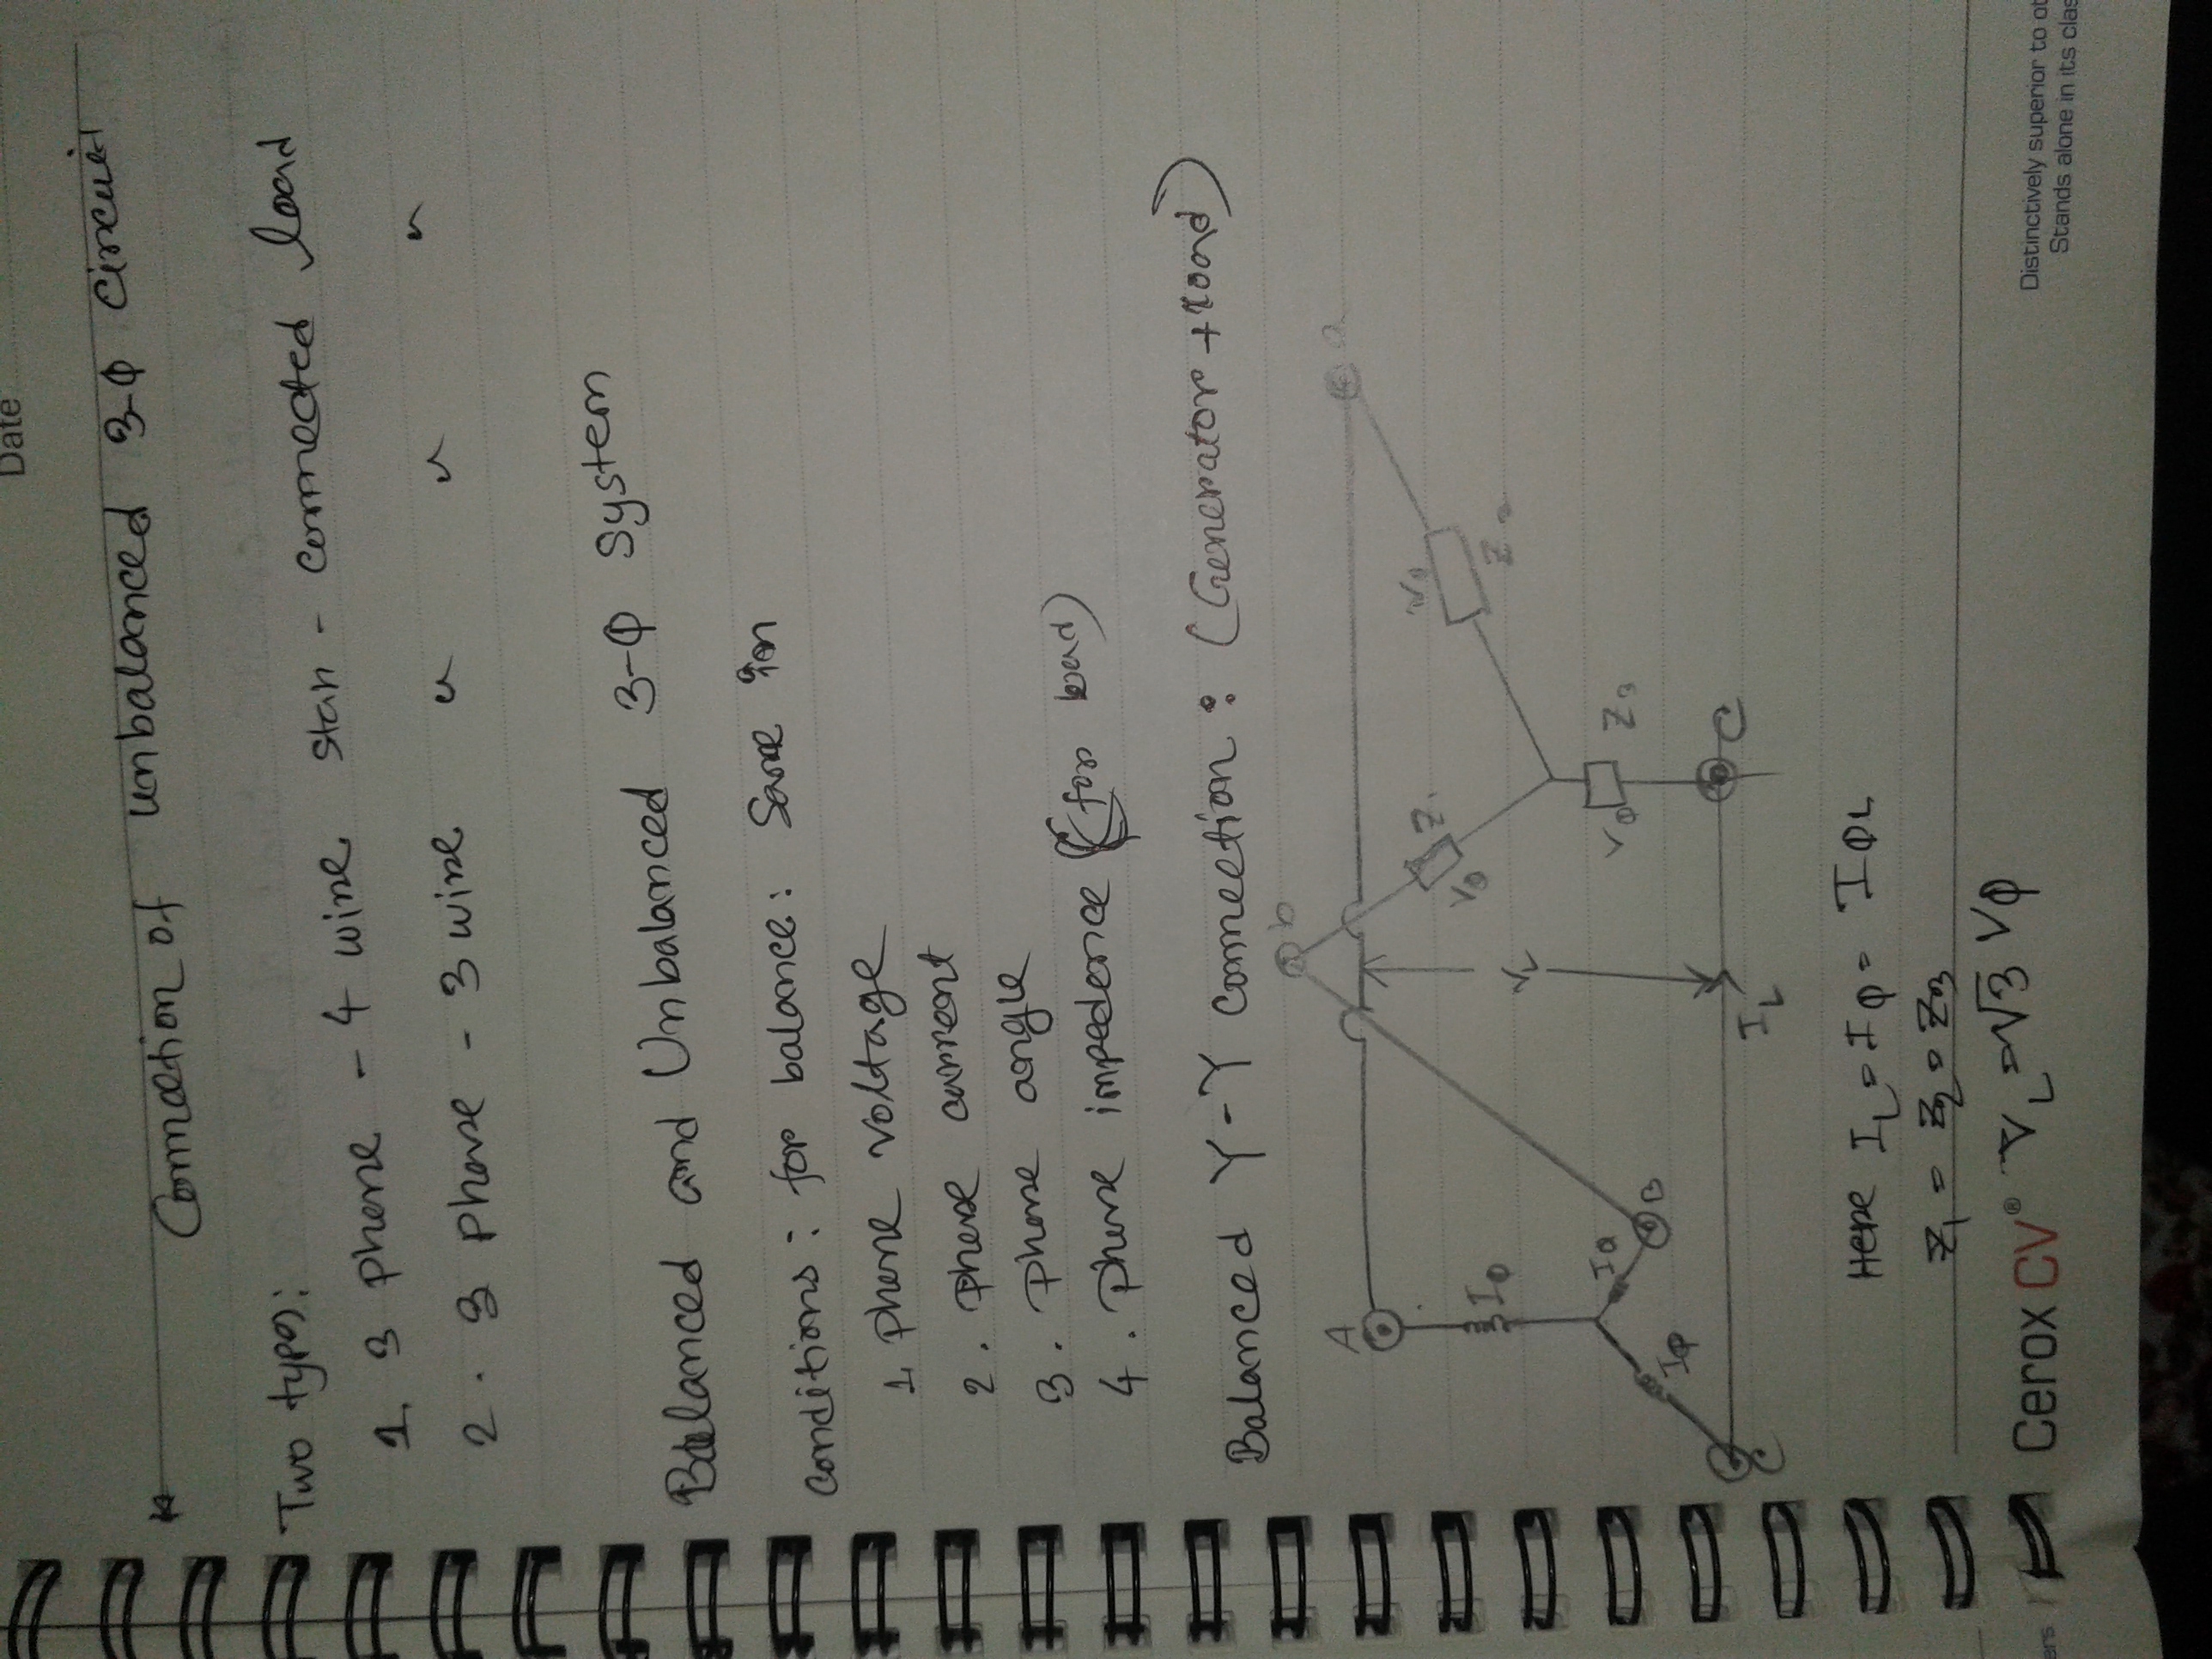 Date
Connection of unbalanced 3-Φ circuit
Two types:
1. 3 phase - 4 wire star - connected load
2. 3 phase - 3 wire " " "
Balanced and Unbalanced 3-Φ system
Conditions: for balance: Same in
1. Phase voltage
2. Phase current
3. Phase angle
4. Phase impedence (for load)
Balanced Y-Y connection: (Generator + load)
b
A
a
Z1
VΦ
VΦ
Z2
IΦ
VL
IΦ
VΦ
Z3
B
IΦ
C
C
IL
Here IL = IΦ = IΦL
Z1 = Z2 = Z3
Cerox CV® VL = √3 VΦ
Distinctively superior to
Stands alone in its